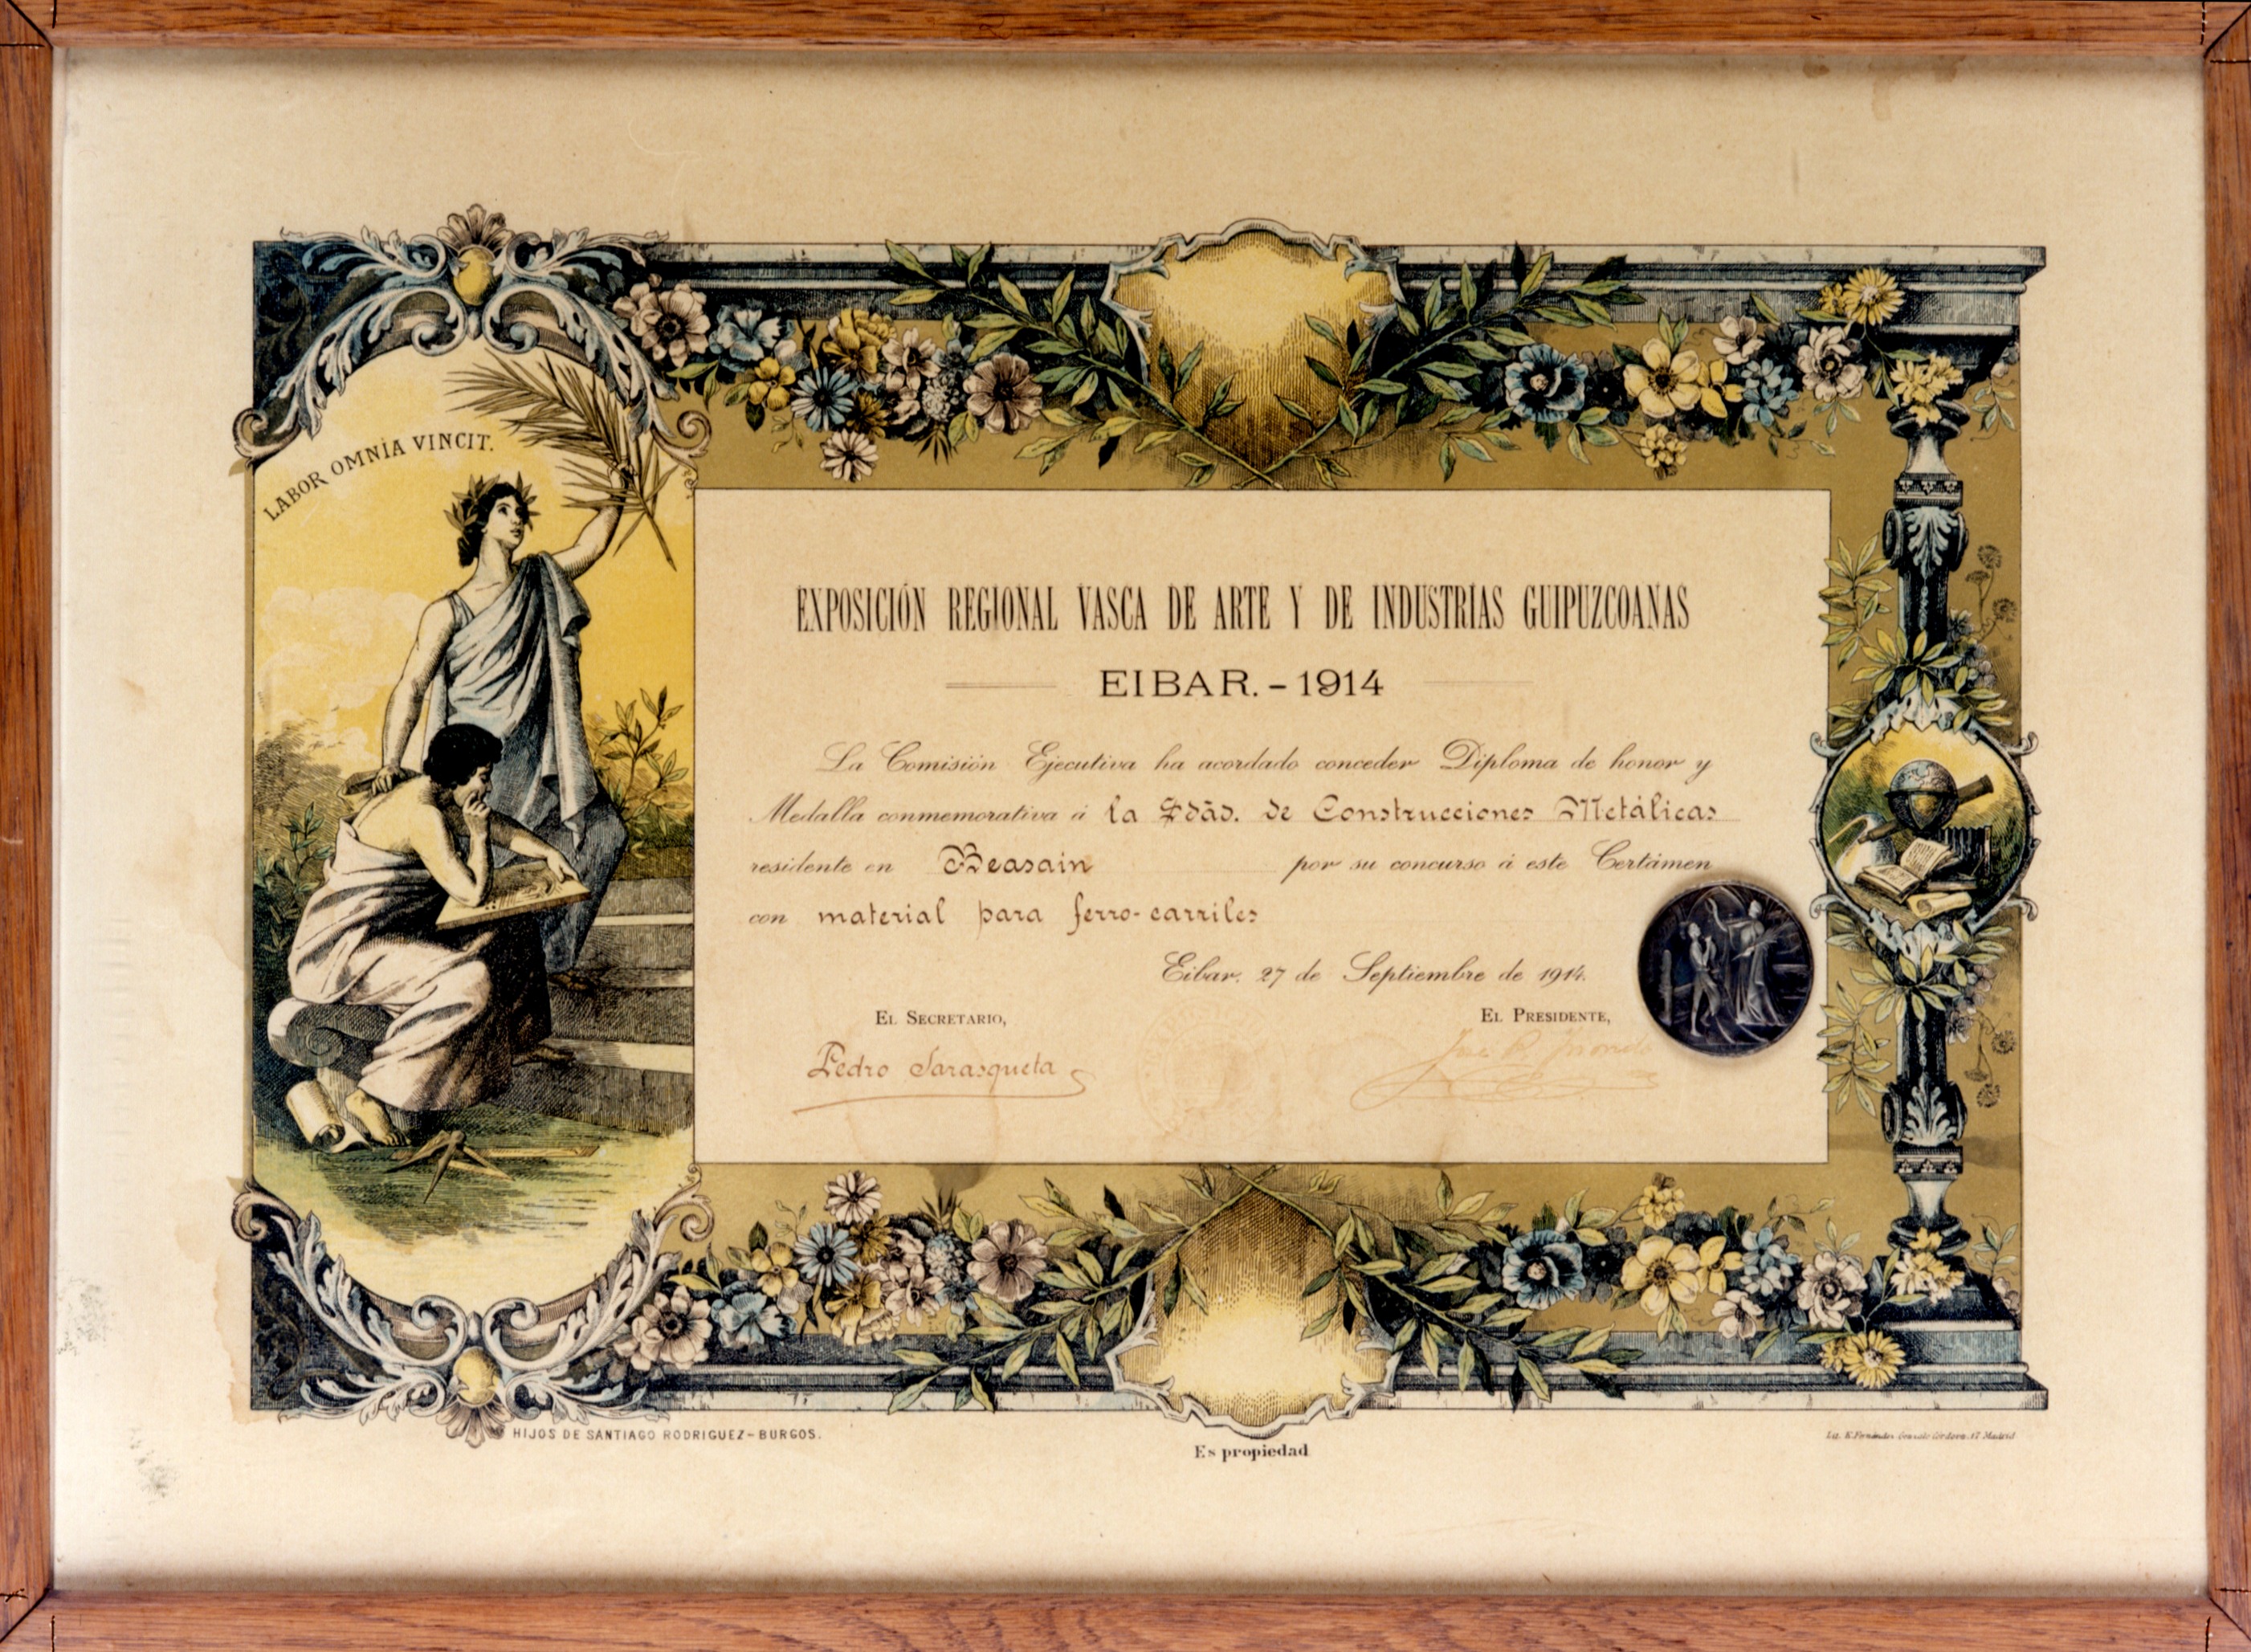 LABOR OMNIA VINCIT.
EXPOSICIÓN REGIONAL VASCA DE ARTE Y DE INDUSTRIAS GUIPUZCOANAS
EIBAR. - 1914
La Comisión Ejecutiva ha acordado conceder Diploma de honor y
Medalla conmemorativa á la Sdad. de Construcciones Metálicas
residente en Beasain por su concurso á este Certámen
con material para ferro-carriles
Eibar, 27 de Septiembre de 1914.
EL SECRETARIO,
EL PRESIDENTE,
Pedro Sarasqueta
HIJOS DE SANTIAGO RODRIGUEZ-BURGOS.
Es propiedad
Madrid